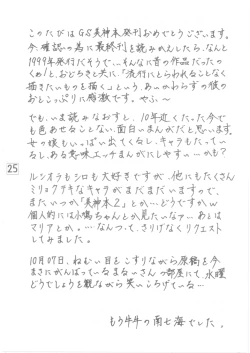 このたびはGS美神本発刊おめでとうございます。
今、確認の為に最終刊を読みかえしたら、なんと
1999年発行だそうで…そんなに昔の作品だったの
くぁ!と、おどろきと共に、「流行にとらわれることなく
描きたいものを描く」という、あいかわらずの彼の
おとこっぷりに感激です。やふ〜
でも、いま読みなおすと、10年近くたった今で
も色あせることない面白いまんがだと思います。
女の娘もいっぱい出てくるし、キャラもたってい
るし、ある意味エッチまんがにしやすい…かも?
25
ルシオラもシロも大好きですが、他にもたくさん
ミリョクテキなキャラがまだまだいますので、
またいつか「美神本2」とか…どうですかw
個人的には小鳩ちゃんとか見たいなァ…あとは
マリアとか。…なんつって、さりげなくリクエスト
してみました。
10月07日、ねむい目をこすりながら原稿を今
まさにがんばっているまるいさんの部屋にて、水曜
どうでしょうを観ながら笑いころげている…
もう牛牛の南七海でした。